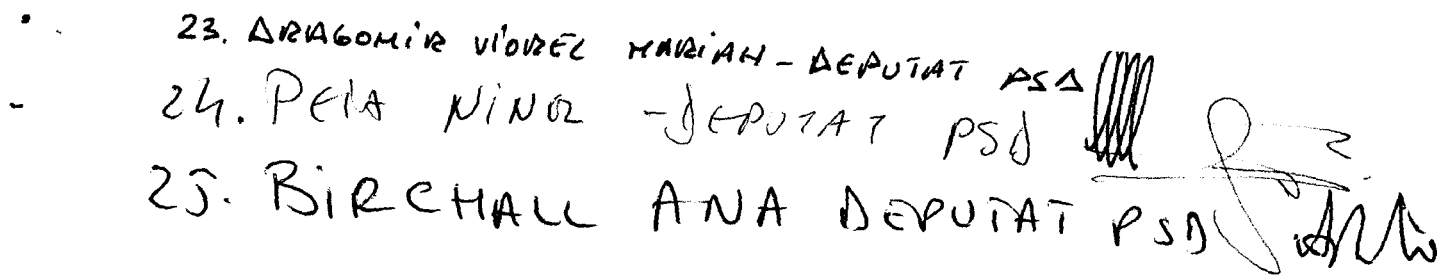 23. DRAGOMIR VIOREL MARIAN - DEPUTAT PSD
24. PEIA NINEL - DEPUTAT PSD
25. BIRCHALL ANA DEPUTAT PSD